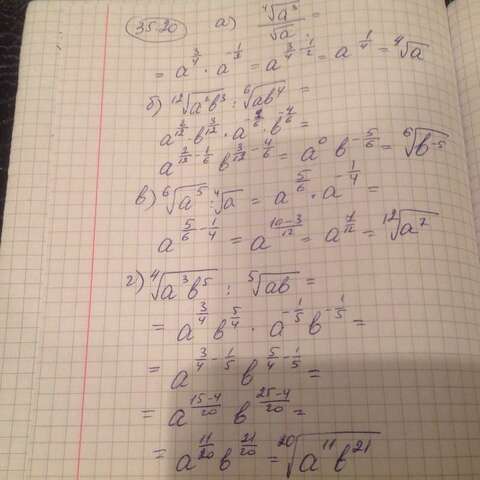 35.20 а) ⁴√a³ / √a =
= a^(3/4) · a^(-1/2) = a^(3/4 - 1/2) = a^(1/4) = ⁴√a
б) ¹²√(a²b³) : ⁶√(ab⁴) =
a^(2/12) · b^(3/12) · a^(-1/6) · b^(-4/6) =
a^(2/12 - 1/6) b^(3/12 - 4/6) = a⁰ b^(-5/6) = ⁶√(b⁻⁵)
в) ⁶√a⁵ : ⁴√a = a^(5/6) · a^(-1/4) =
a^(5/6 - 1/4) = a^((10-3)/12) = a^(7/12) = ¹²√a⁷
г) ⁴√(a³b⁵) : ⁵√(ab) =
= a^(3/4) b^(5/4) · a^(-1/5) b^(-1/5) =
= a^(3/4 - 1/5) b^(5/4 - 1/5) =
= a^((15-4)/20) b^((25-4)/20) =
= a^(11/20) b^(21/20) = ²⁰√(a¹¹b²¹)